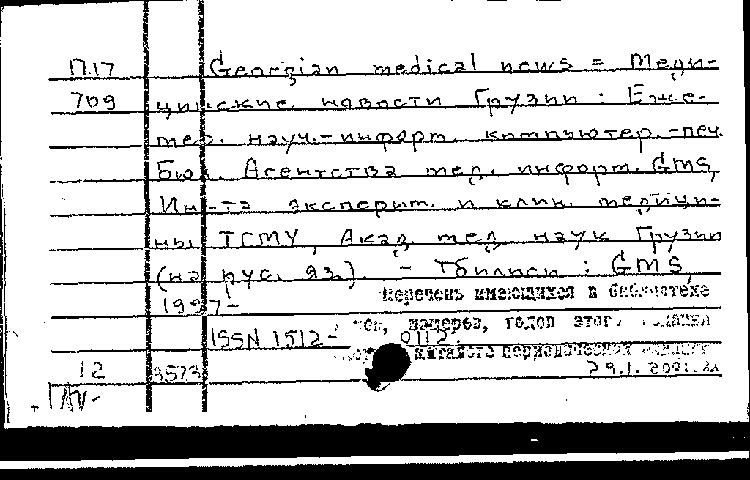 П.17 Georgian medical news = Меди-
709 цинские новости Грузии : Еже-
мес. науч.-информ. компьютер.-печ.
Бюл. Агентства мед. информ. GMS,
Ин-та эксперим. и клин. медици-
ны ТГМУ, Акад. мед. наук Грузии
(на рус. яз.). - Тбилиси : GMS,
перечень имеющихся в библиотеке
1997-
номеров, годов этого издания
ISSN 1512-0112.
периодических
12 3573